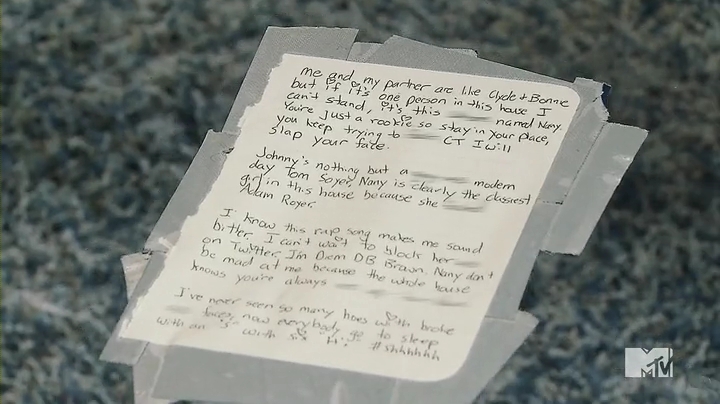 me and my partner are like Clyde + Bonnie
but if it's one person in this house I
can't stand, it's this named Nany.
You're just a rookie so stay in your place,
you keep trying to CT I will
slap your face.
Johnny's nothing but a modern
day Tom Soyer, Nany is clearly the classiest
girl in this house because she
Adam Royer.
I know this rap song makes me sound
bitter, I can't wait to block her
on Twitter, I'm Diem DB Brown. Nany don't
be mad at me because the whole house
knows you're always
I've never seen so many hoes with broke
faces, now everybody go to sleep
with an "S" with "h". #shhhhhh
MTV